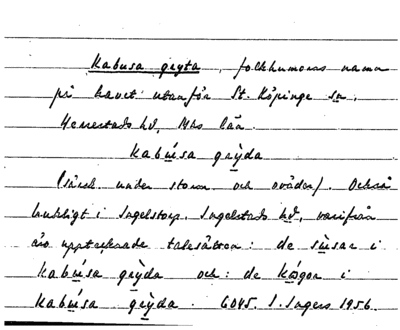 Kabusa gryta, folkhumorns namn
på havet utanför St. Köpinge sn,
Herrestads hd, Mhs län.
Kabúsa grỳda
(särsk. under storm och oväder). Också
brukligt i Ingelstorp, Ingelstads hd, varifrån
äro upptecknade talesätten: de sùsar i
Kabúsa grỳda och: de kógar i
Kabúsa grỳda. 6045. I. Ingers 1956.